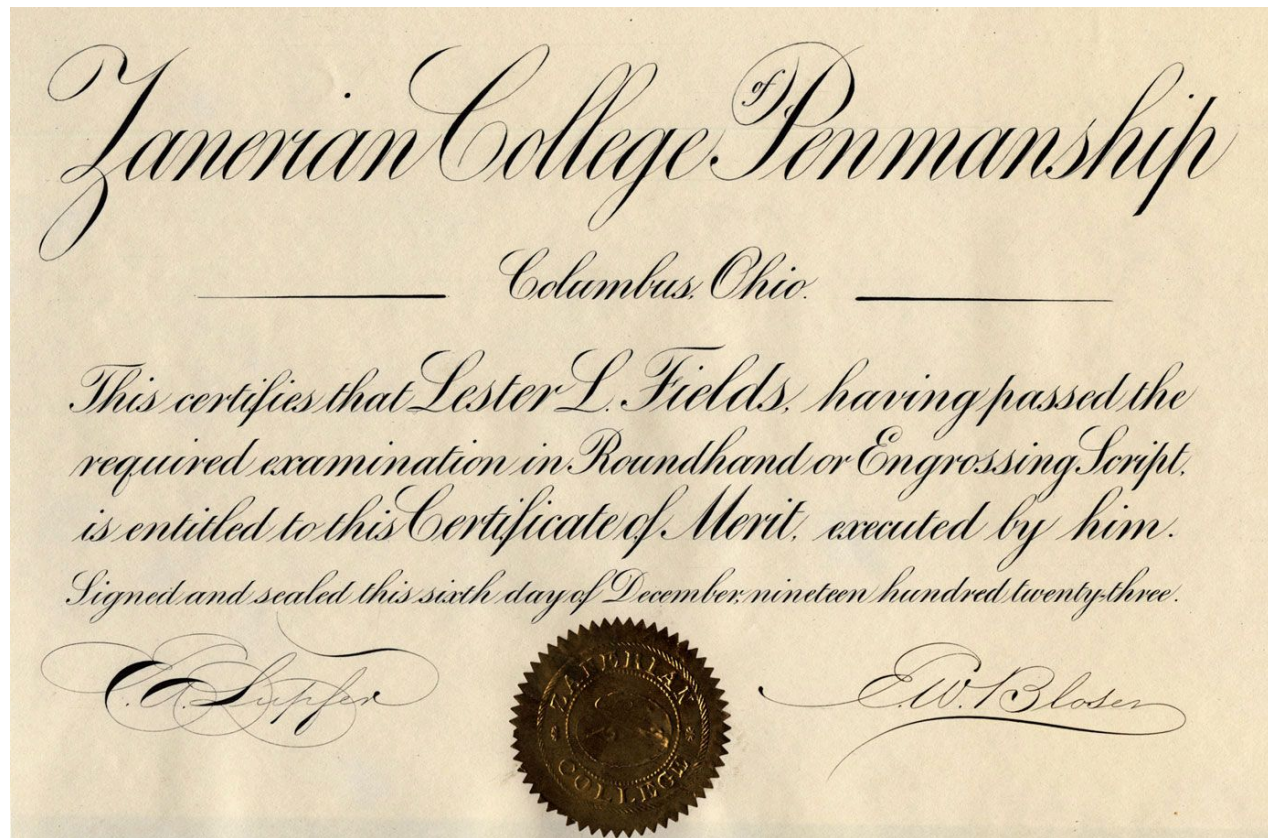 Zanerian College of Penmanship
Columbus, Ohio.
This certifies that Lester L. Fields, having passed the
required examination in Roundhand or Engrossing Script,
is entitled to this Certificate of Merit, executed by him.
Signed and sealed this sixth day of December, nineteen hundred twenty-three.
E. A. Lupfer
ZANERIAN COLLEGE
E. W. Bloser